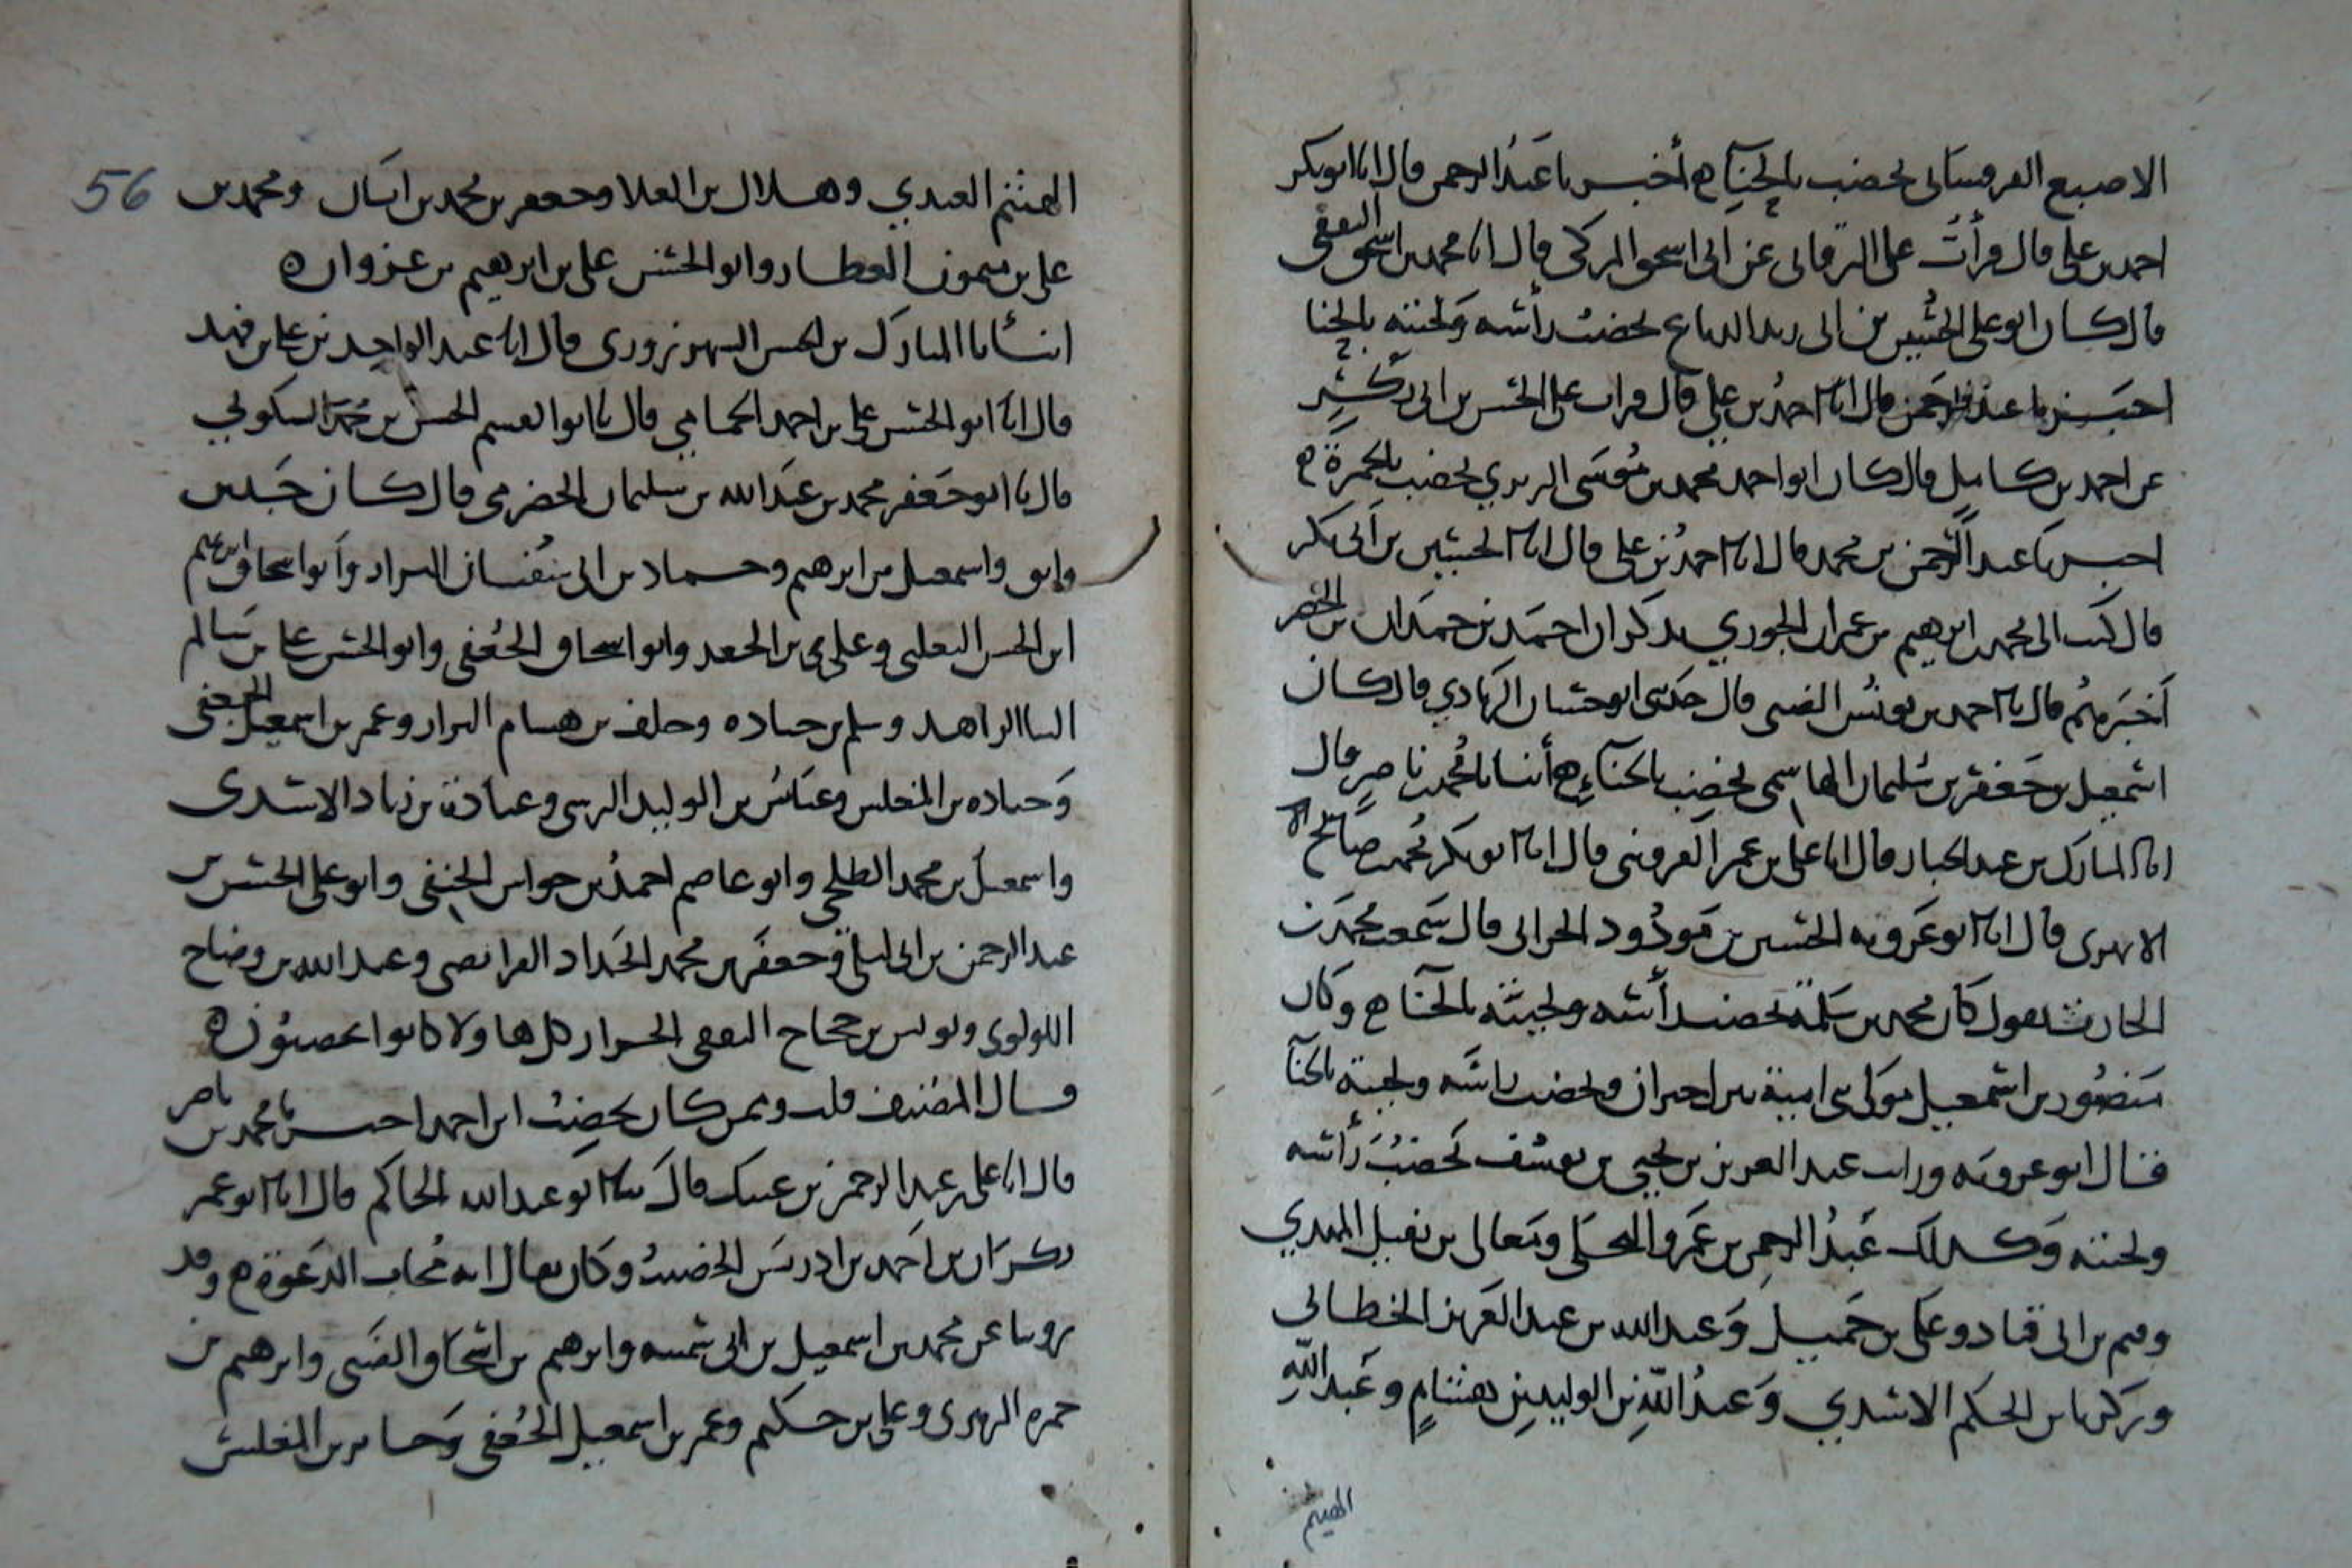 الاصبع القرقساني يخضب بالحناء ه أخبرنا عبد الرحمن قال انا ابو بكر
احمد بن علي قال قرأت على البرقاني عن ابي اسحق المزكي قال انا محمد بن اسحق الثقفي
قال كان ابو علي الحسين بن ابي زيد الدباغ يخضب رأسه ولحيته بالحنا
اخبرنا عبد الرحمن قال انا احمد بن علي قال قرات على الحسن بن ابي بكر
عن احمد بن كامل قال كان ابو احمد محمد بن موسى البربري يخضب بالحمرة ه
اخبرنا عبد الرحمن بن محمد قال انا احمد بن علي قال انا الحسين بن ابي بكر
قال كتب الي محمد بن ابرهيم بن عمران الجوري يذكر ان احمد بن حمدان بن الخضر
أخبرهم قال نا احمد بن يونس الضبي قال حدثني ابو حسان الزيادي قال كان
اسمعيل بن جعفر بن سليمان الهاشمي يخضب بالحناء ه أنبانا محمد بن ناصر قال
انا المبارك بن عبد الجبار قال انا علي بن عمر القزويني قال انا ابو بكر محمد بن صالح
الابهري قال انا ابو عروبه الحسين بن مودود الحراني قال سمعت محمد بن
الحارث يقول كان محمد بن سلمة يخضب رأسه ولحيته بالحنا ه وكان
منصور بن اسمعيل مولى بني امية من اهل حران يخضب راسه ولحيته بالحنا
قال ابو عروبه ورات عبد العزيز بن يحيى بن يوسف يخضب رأسه
ولحيته وكذلك عبد الرحمن بن عمرو المحلي ومعالى بن نفيل المهدي
وميم بن ابي قتاد وعلي بن جميل وعبد الله بن عبد العزيز الخطابي
وزكريا بن الحكم الاسدي وعبد الله بن الوليد بن هشام وعبد الله
الهيثم
56
الهيثم العبدي وهلال بن العلا وجعفر بن محمد بن ابان ومحمد بن
علي بن ميمون العطار وابو الحسن علي بن ابرهيم بن عزوان ه
انبأنا المبارك بن الحسن الشهرزوري قال انا عبد الواحد بن علي بن فهد
قال انا ابو الحسن علي بن احمد الحمامي قال نا ابو القسم الحسن بن محمد السكوني
قال نا ابو جعفر محمد بن عبد الله بن سليمان الحضرمي قال كان حسن
واسمعيل بن ابرهيم وحماد بن ابي سفيان البزاد وابو اسحاق ابرهيم
ابن الحسن الثعلبي وعلي بن الجعد وابو اسحاق الجعفي وابو الحسن علي بن سالم
الزاهد وسلم بن جناده وخلف بن هشام البزار وعمر بن اسمعيل الجعفي
وجباره بن المغلس وعباس بن الوليد النرسي وعبادة بن زياد الاسدي
واسمعيل بن محمد الطلحي وابو عاصم احمد بن جواس الحنفي وابو علي الحسن بن
عبد الرحمن بن ابي ليلى وجعفر بن محمد الحداد الفرائضي وعبد الله بن وضاح
اللولوي ويونس بن حجاج الثقفي ولا كانوا يخضبون ه
قال المصنف قلت وممن كان يخضب ابن احمد اخبرنا محمد بن ناصر
قال انا علي بن عبد الرحمن بن عليك قال نا ابو عبد الله الحاكم قال انا ابو عمر
بن احمد بن ادريس الخضيب وكان يقال انه مجاب الدعوة ه وقد
روينا عن محمد بن اسمعيل بن ابي سمينه وابرهيم بن اسحاق الضبي وابرهيم بن
حمزه الزهري وعلي بن حكيم وعمر بن اسمعيل الجعفي وجباره بن المغلس